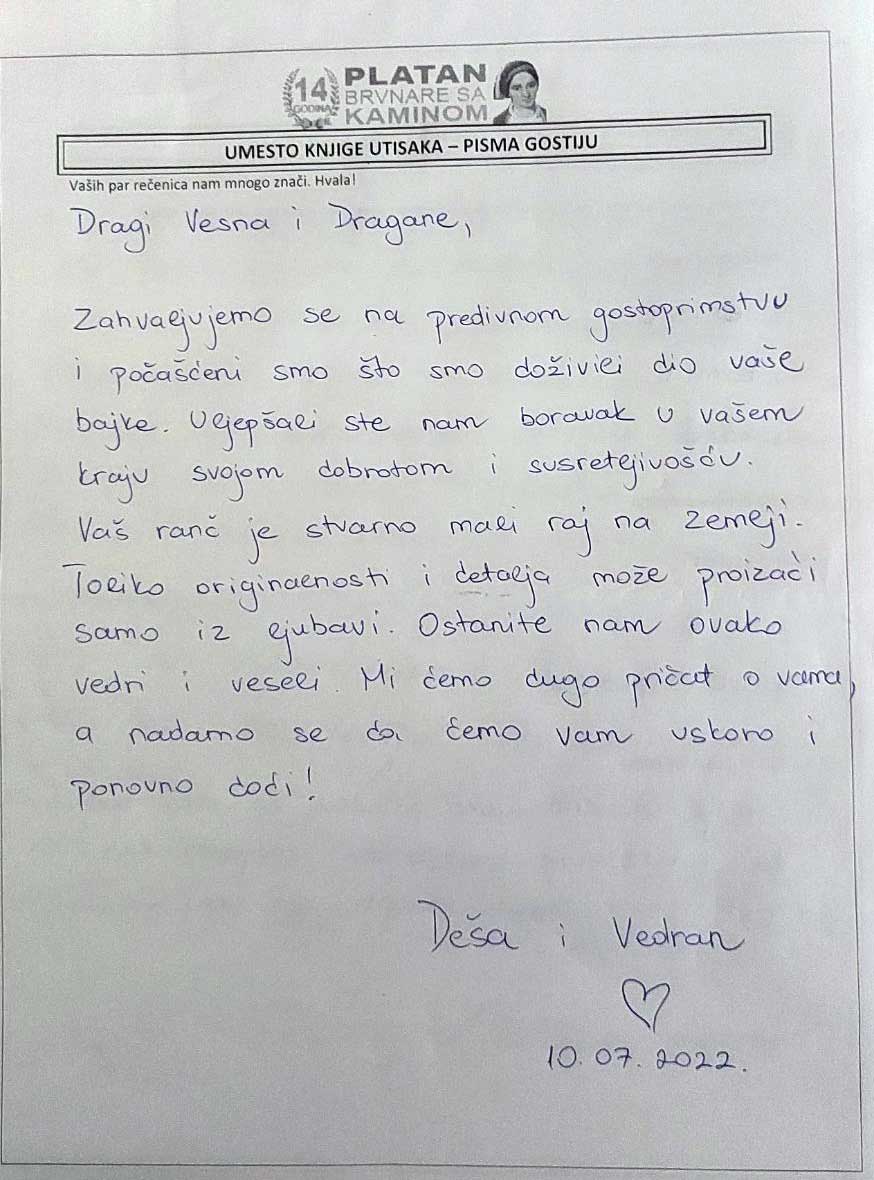 14 GODINA
PLATAN
BRVNARE SA
KAMINOM
UMESTO KNJIGE UTISAKA – PISMA GOSTIJU
Vaših par rečenica nam mnogo znači. Hvala!
Dragi Vesna i Dragane,
Zahvaljujemo se na predivnom gostoprimstvu
i počašćeni smo što smo doživili dio vaše
bajke. Uljepšali ste nam boravak u vašem
kraju svojom dobrotom i susretljivošću.
Vaš ranč je stvarno mali raj na zemlji.
Toliko originalnosti i detalja može proizaći
samo iz ljubavi. Ostanite nam ovako
vedri i veseli. Mi ćemo dugo pričat o vama,
a nadamo se da ćemo vam uskoro i
ponovno doći!
Deša i Vedran
♡
10.07.2022.